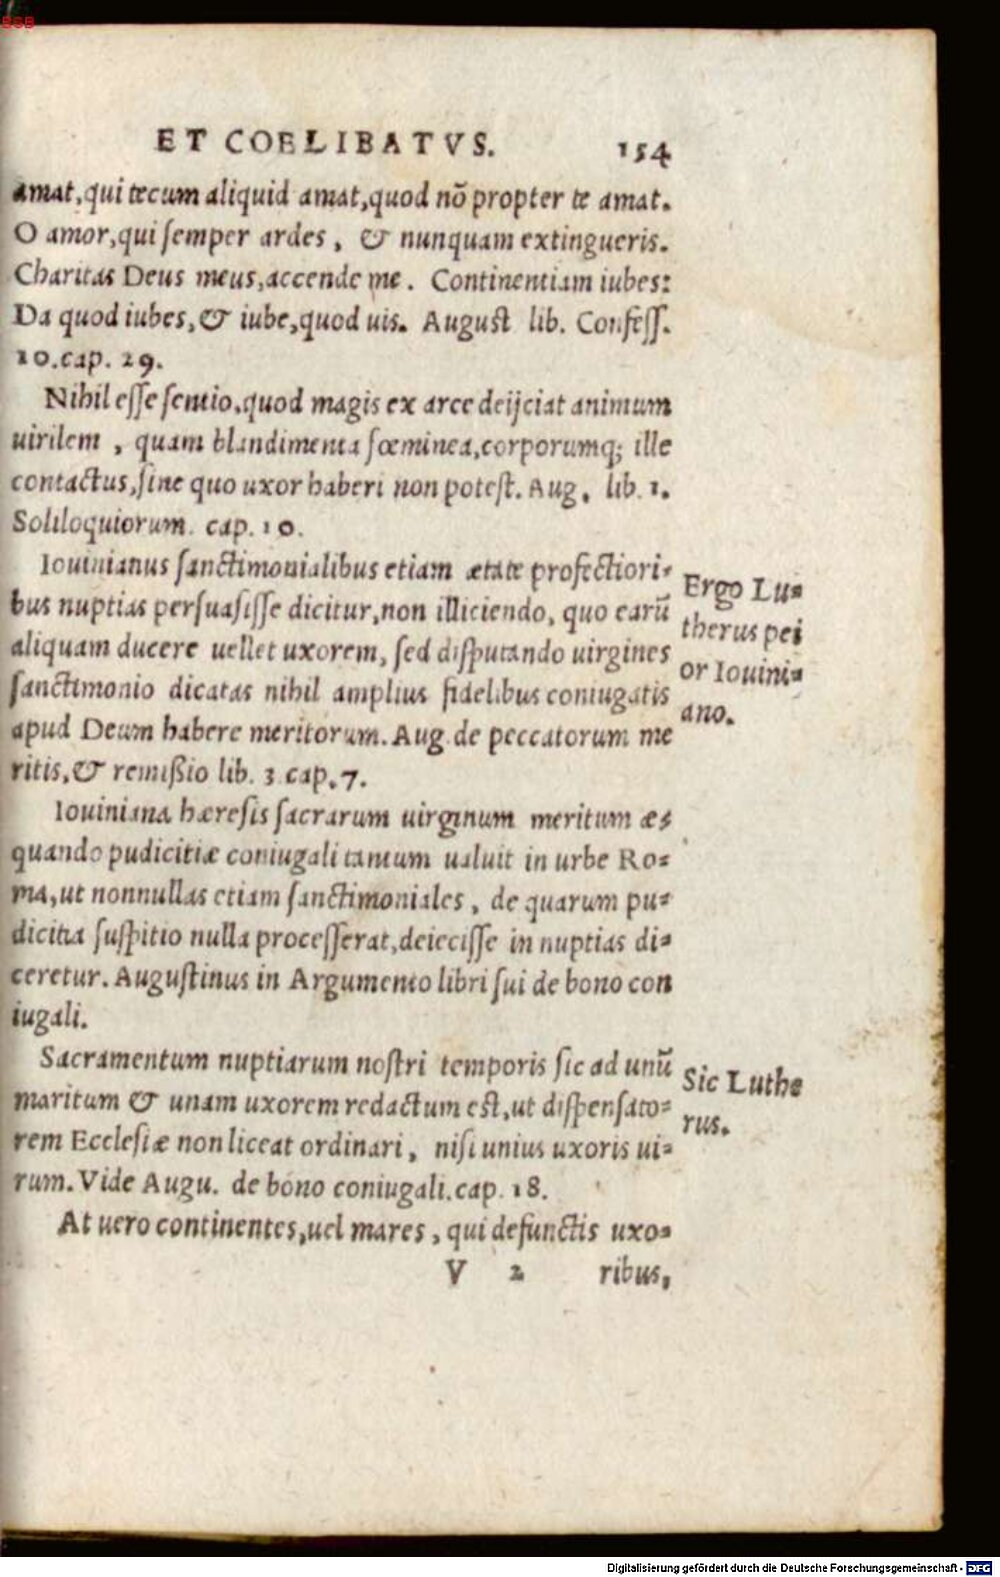 BSB
ET COELIBATVS. 154
amat,qui tecum aliquid amat,quod nõ propter te amat.
O amor,qui semper ardes, & nunquam extingueris.
Charitas Deus meus,accende me. Continentiam iubes:
Da quod iubes,& iube,quod uis. August lib. Confess.
10.cap. 29.
Nihil esse sentio,quod magis ex arce deijciat animum
uirilem, quam blandimenta fœminea,corporumq; ille
contactus,sine quo uxor haberi non potest. Aug. lib. 1.
Soliloquiorum. cap. 10.
Iouinianus sanctimonialibus etiam ætate profectiori-
bus nuptias persuasisse dicitur,non illiciendo, quo earũ
aliquam ducere uellet uxorem, sed disputando uirgines
sanctimonio dicatas nihil amplius fidelibus coniugatis
apud Deum habere meritorum. Aug. de peccatorum me
ritis,& remißio lib. 3 cap.7.
Ergo Lu-
therus pei
or Iouini-
ano.
Iouiniana hæresis sacrarum uirginum meritum æ-
quando pudicitiæ coniugali tantum ualuit in urbe Ro-
ma,ut nonnullas etiam sanctimoniales, de quarum pu-
dicitia suspitio nulla processerat,deiecisse in nuptias di-
ceretur. Augustinus in Argumento libri sui de bono con
iugali.
Sacramentum nuptiarum nostri temporis sic ad unũ
maritum & unam uxorem redactum est,ut dispensato-
rem Ecclesiæ non liceat ordinari, nisi unius uxoris ui-
rum. Vide Augu. de bono coniugali.cap. 18.
Sic Luthe
rus.
At uero continentes,uel mares, qui defunctis uxo-
V 2 ribus,
Digitalisierung gefördert durch die Deutsche Forschungsgemeinschaft - DFG